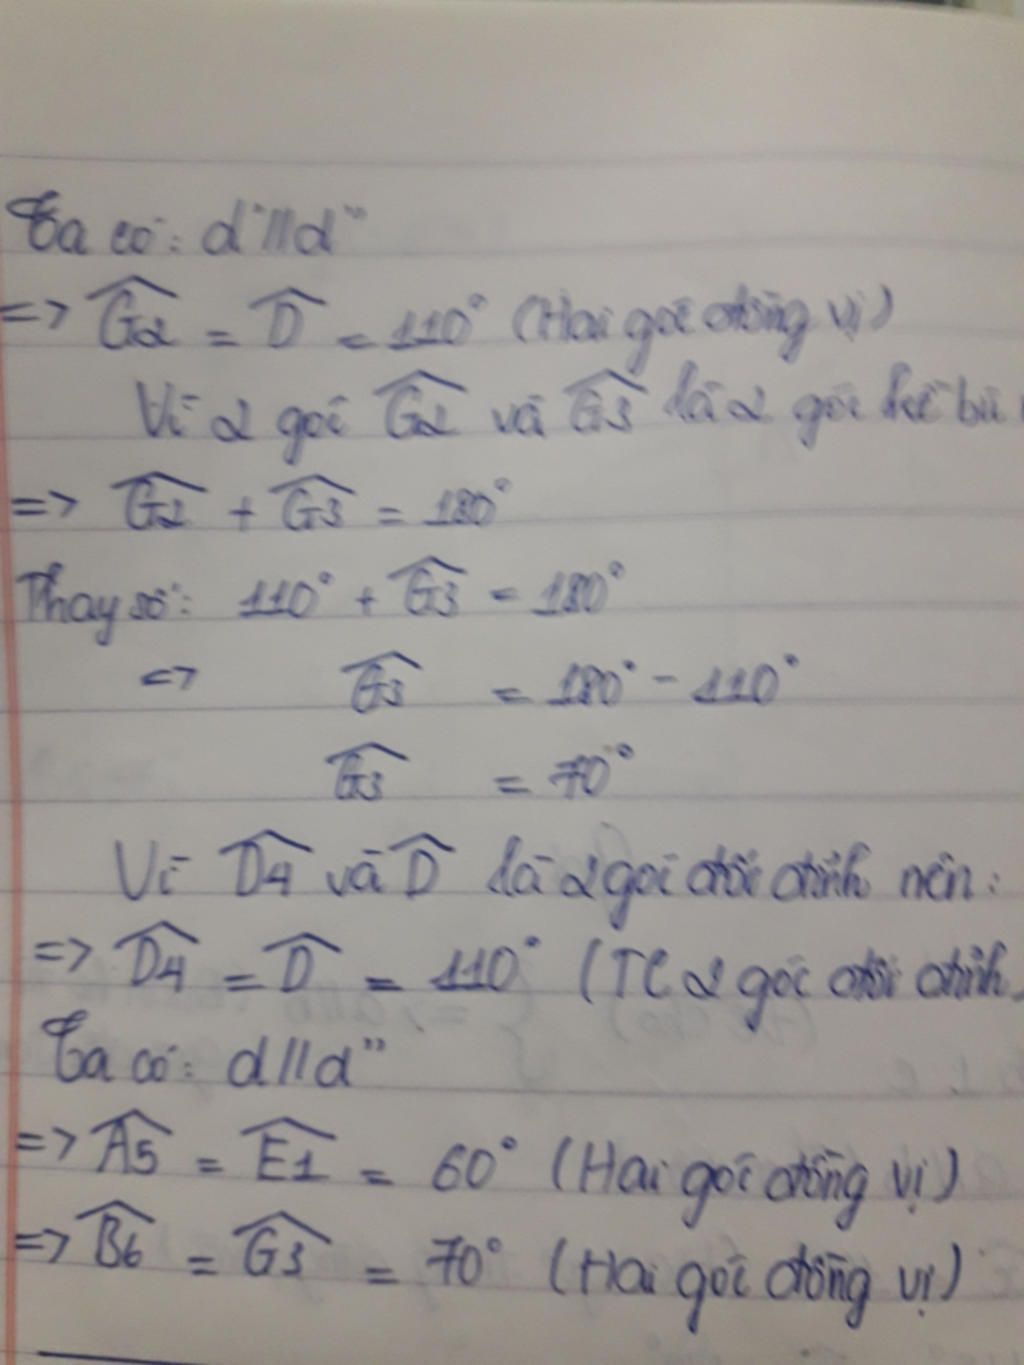 Ta có: d'//d''
=> Ĝ2 = D̂ = 110° (Hai góc đồng vị)
Vì 2 góc Ĝ2 và Ĝ3 là 2 góc kề bù
=> Ĝ2 + Ĝ3 = 180°
Thay số: 110° + Ĝ3 = 180°
<=> Ĝ3 = 180° - 110°
Ĝ3 = 70°
Vì D̂4 và D̂ là 2 góc đối đỉnh nên:
=> D̂4 = D̂ = 110° (TC 2 góc đối đỉnh)
Ta có: d//d''
=> Â5 = Ê1 = 60° (Hai góc đồng vị)
=> B̂6 = Ĝ3 = 70° (Hai góc đồng vị)